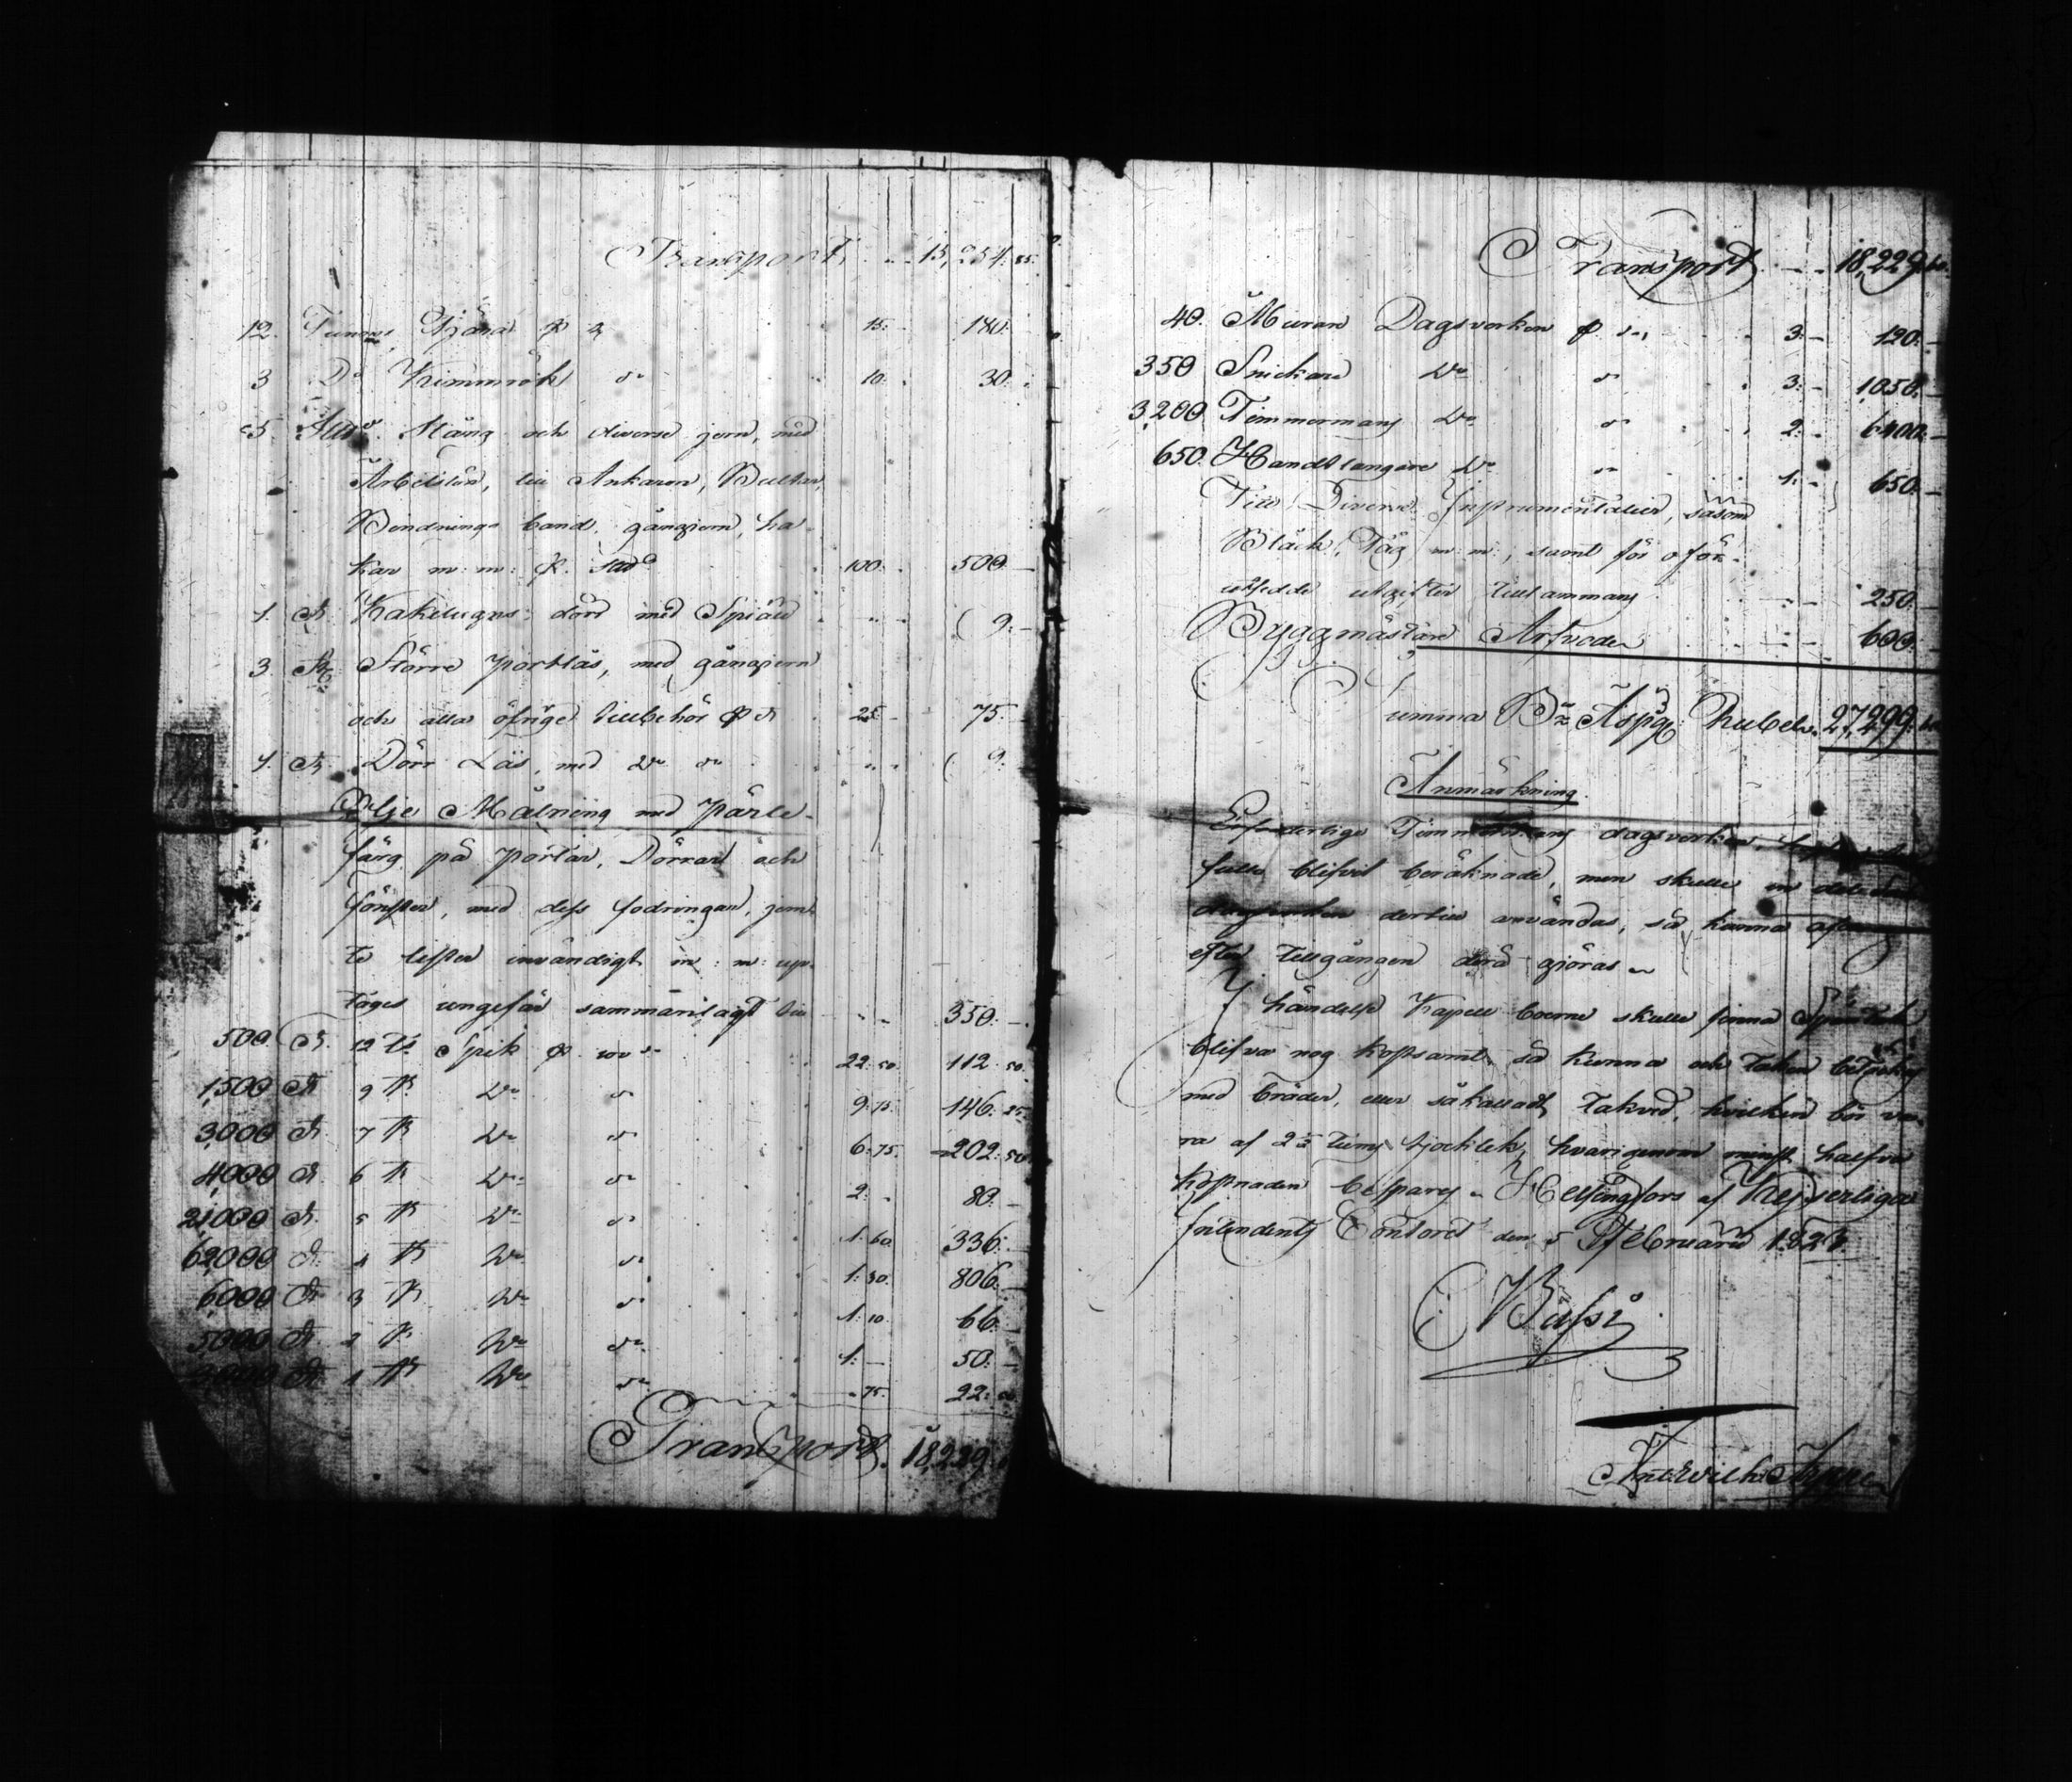 Transport, . . 15,254: 85.
12. Tunnor Tjära p 15. 180.
3 Do Kimmrök 10. 30.
5. Stång och diverse jern, med
Arbetslön, till Ankaren, Bultar,
Bindnings band, gångjern, ha-
kar m: m: p. 100. 500. —
1. St. Kakelugns dörr med Spjäll 9. —
3. St. Större portlås, med gångjern
och alla öfrige tillbehör p st 25 75. —
1. St. Dörr Lås, med Do 9.
Olje Målning med pärle-
färg på portar, Dörrar och
fönster, med dess fodringar, jem-
te lister invändigt m: m: up-
tages ungefär sammanlagt till 350. —
500 St. 12 Ts Spik p. 22: 50. 112: 50.
1,500 St. 9 Ts Do 9: 75. 146: 25
3,000 St. 7 Ts Do 6: 75. 202: 50
4,000 St. 6 Ts Do 2: - 80. —
21,000 St. 5 Ts Do 1: 60. 336. —
62,000 St. 4 Ts Do 1: 30. 806. —
6,000 St. 3 Ts Do 1: 10. 66. —
5,000 St. 2 Ts Do 1: — 50. —
St. 1 Ts Do - 75. 22: 50
Transport. 18,229.
Transport - - 18,229:
40. Murare Dagsverken p 3: - 120. —
350 Snickare Do 3: - 1,050. —
3,200. Timmermans Do 2: - 6400: —
650. Handtlangare Do 1: - 650. —
Till Diverse Instrumentalier, såsom
Bläck, Tåg m: m:, samt för oför-
utsedde utgifter tillsammans 250. —
Byggmästare Arfvode 600. —
Summa Bco Assign: Rubel. 27,299:
Anmärkning.
Erforderlige Timmermans dagsverken
fulle blifvit beräknade, men skulle en del
dertill användas, så kunna
efter tillgången göras
I händelse Kapell boerne skulle finna
blifva nog kostsamt, så kunna och taken betäckas
med bräder, eller såkallad takved, hvilken bör va-
ra af 2½ tums tjocklek, hvarigenom minst halfva
kostnaden bespares. Helsingfors af Kejserliga
Intendents Contoret den 5 Februarii 1823.
C Bassi